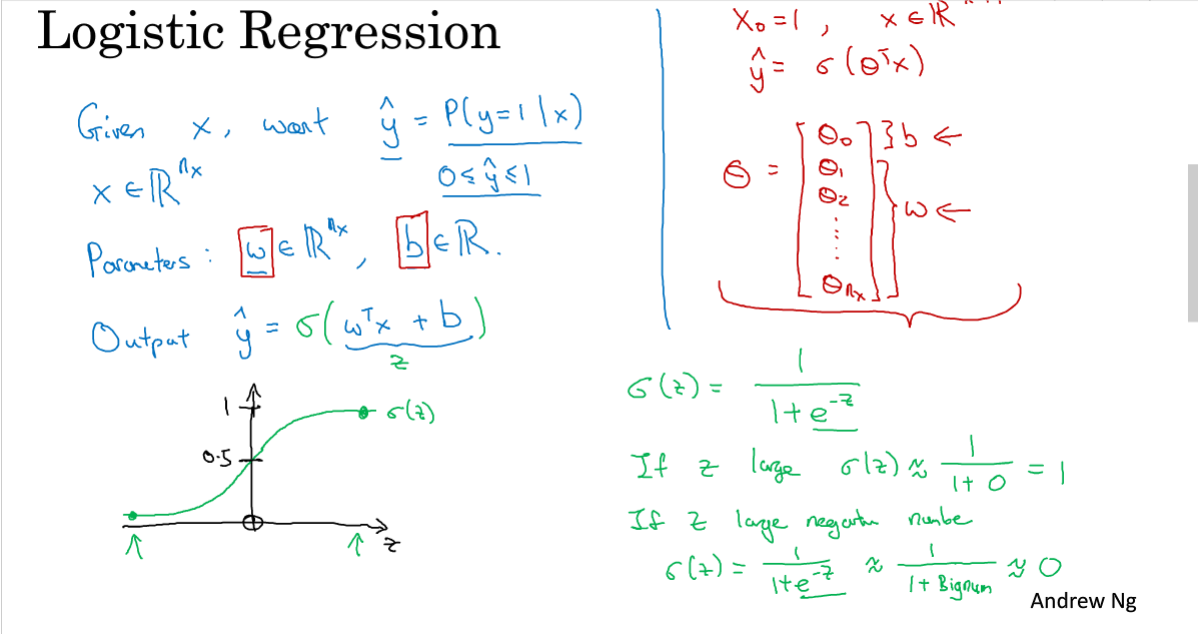 Logistic Regression
Given x, want ŷ = P(y=1|x)
0≤ŷ≤1
x ∈ ℝⁿˣ
Parameters: w ∈ ℝⁿˣ, b ∈ ℝ.
Output ŷ = σ(wᵀx + b)
z
1
σ(z)
0.5
z
X₀=1, x ∈ ℝ
ŷ = σ(θᵀx)
θ₀ } b ←
θ = θ₁
θ₂ } w ←
⋮
θₙₓ
σ(z) = 1 / (1+e⁻ᶻ)
If z large σ(z) ≈ 1 / (1+0) = 1
If z large negative number
σ(z) = 1 / (1+e⁻ᶻ) ≈ 1 / (1+Bignum) ≈ 0
Andrew Ng